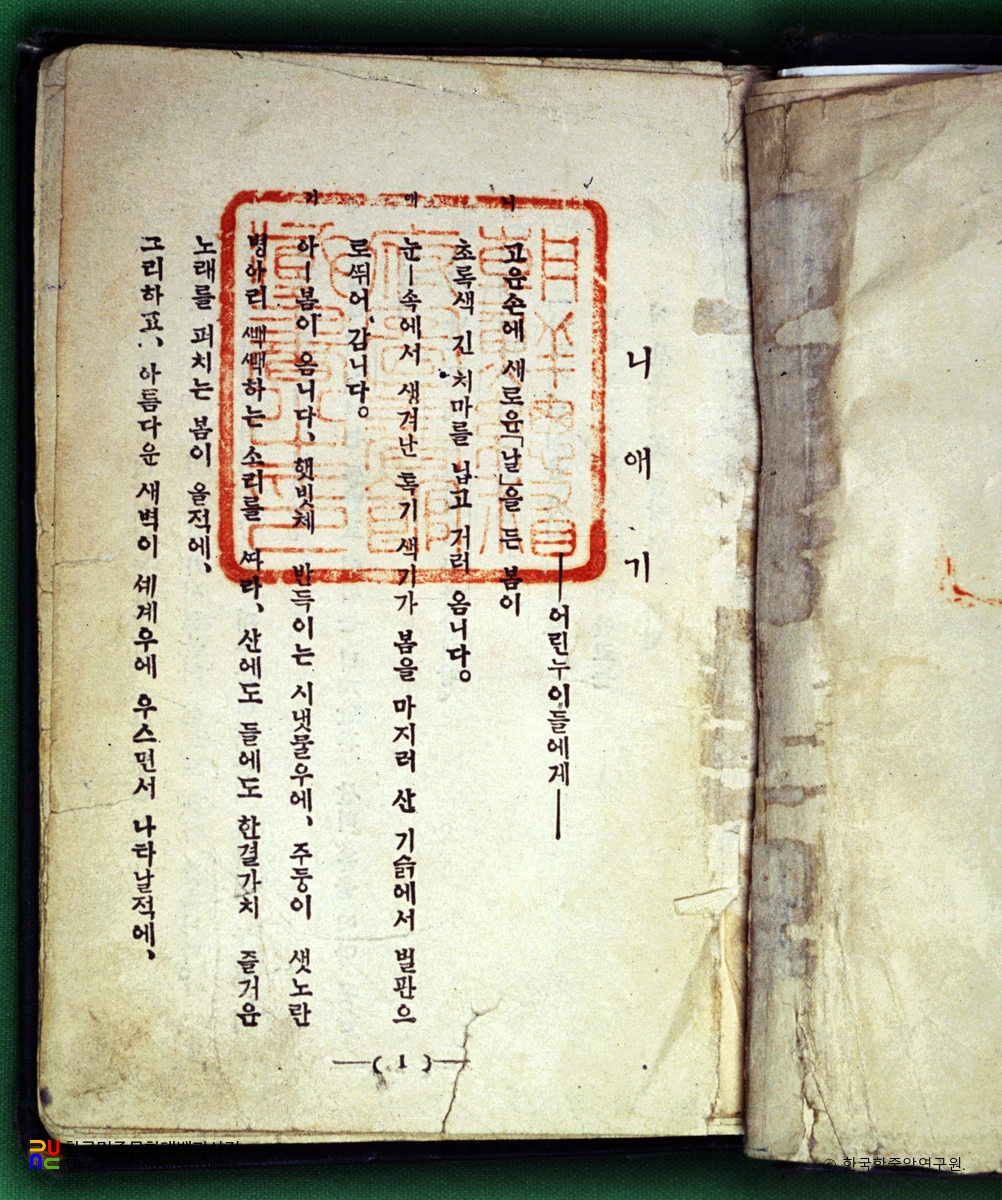 니애기
——어린누이들에게——
고운손에 새로운「날」을 든 봄이
초록색 긴 치마를 닙고 거러 옴니다。
눈—속에서 생겨난 톡기 색기가 봄을 마지러 산 기슭에서 벌판으
로 뛰어 갑니다。
아—봄이 옴니다、햇빗체 반득이는 시냇물우에、주둥이 샛노란
병아리 쌕쌕하는 소리를 따라、산에도 들에도 한결가치 즐거운
노래를 퍼치는 봄이 올적에、
그리하고、아름다운 새벽이 세계우에 우스면서 나타날적에、
—( 1 )—
니애기
한국민족문화대백과사전
© 한국학중앙연구원.